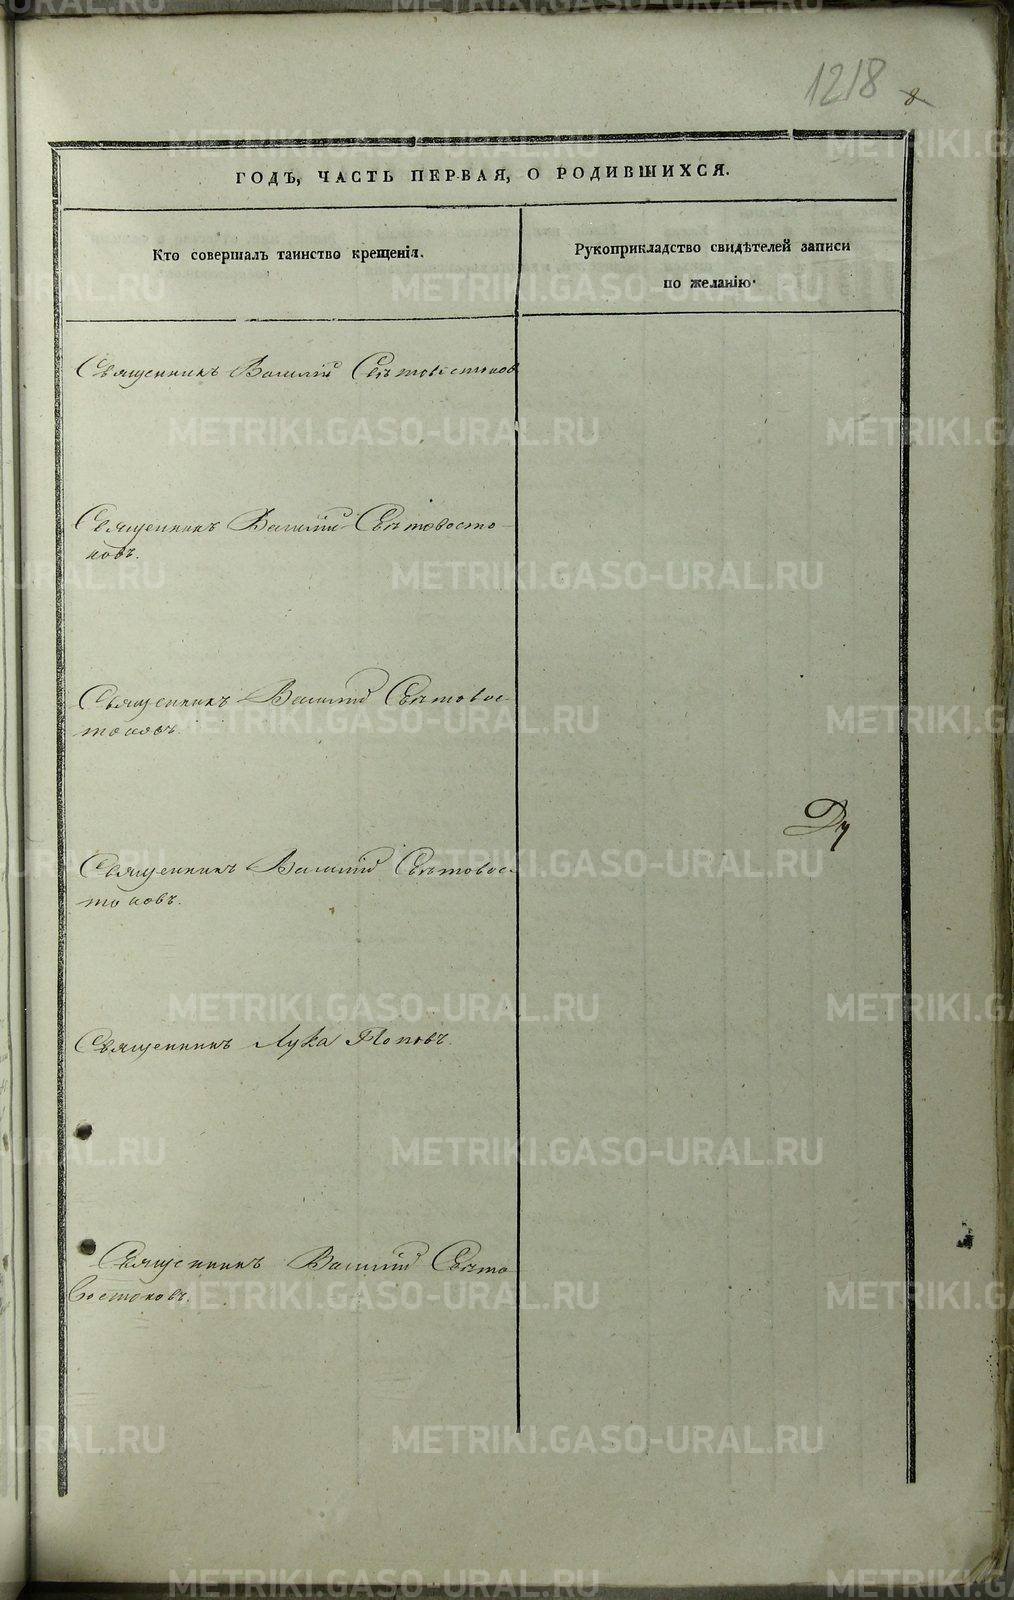 1218
8
ГОДЪ, ЧАСТЬ ПЕРВАЯ, О РОДИВШИХСЯ.
Кто совершалъ таинство крещенія.
Рукоприкладство свидѣтелей записи
по желанію.
Священникъ Василій Свѣтовостоковъ
Священникъ Василій Свѣтовосто-
ковъ.
Священникъ Василій Свѣтовос-
токовъ.
Ду
Священникъ Василій Свѣтовос-
токовъ.
Священникъ Лука Поповъ.
Священникъ Василій Свѣто
востоковъ.
METRIKI.GASO-URAL.RU